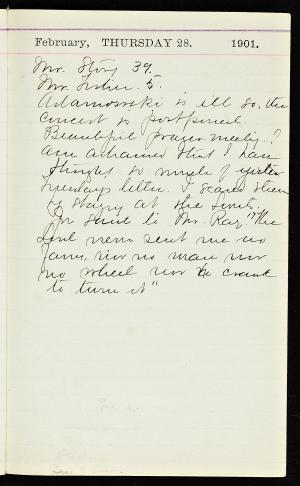 February, THURSDAY 28. 1901.
Mr. Story 39.
Mr. 5.
Adamowski is ill so the
concert is postponed.
Beautiful prayer meeting!
Am ashamed that I have
thought so much of yester
Tuesdays letter. I
at the
said to Mr. Ray "The
Lord never sent me no
man nor
no wheel nor no crank
to turn it"